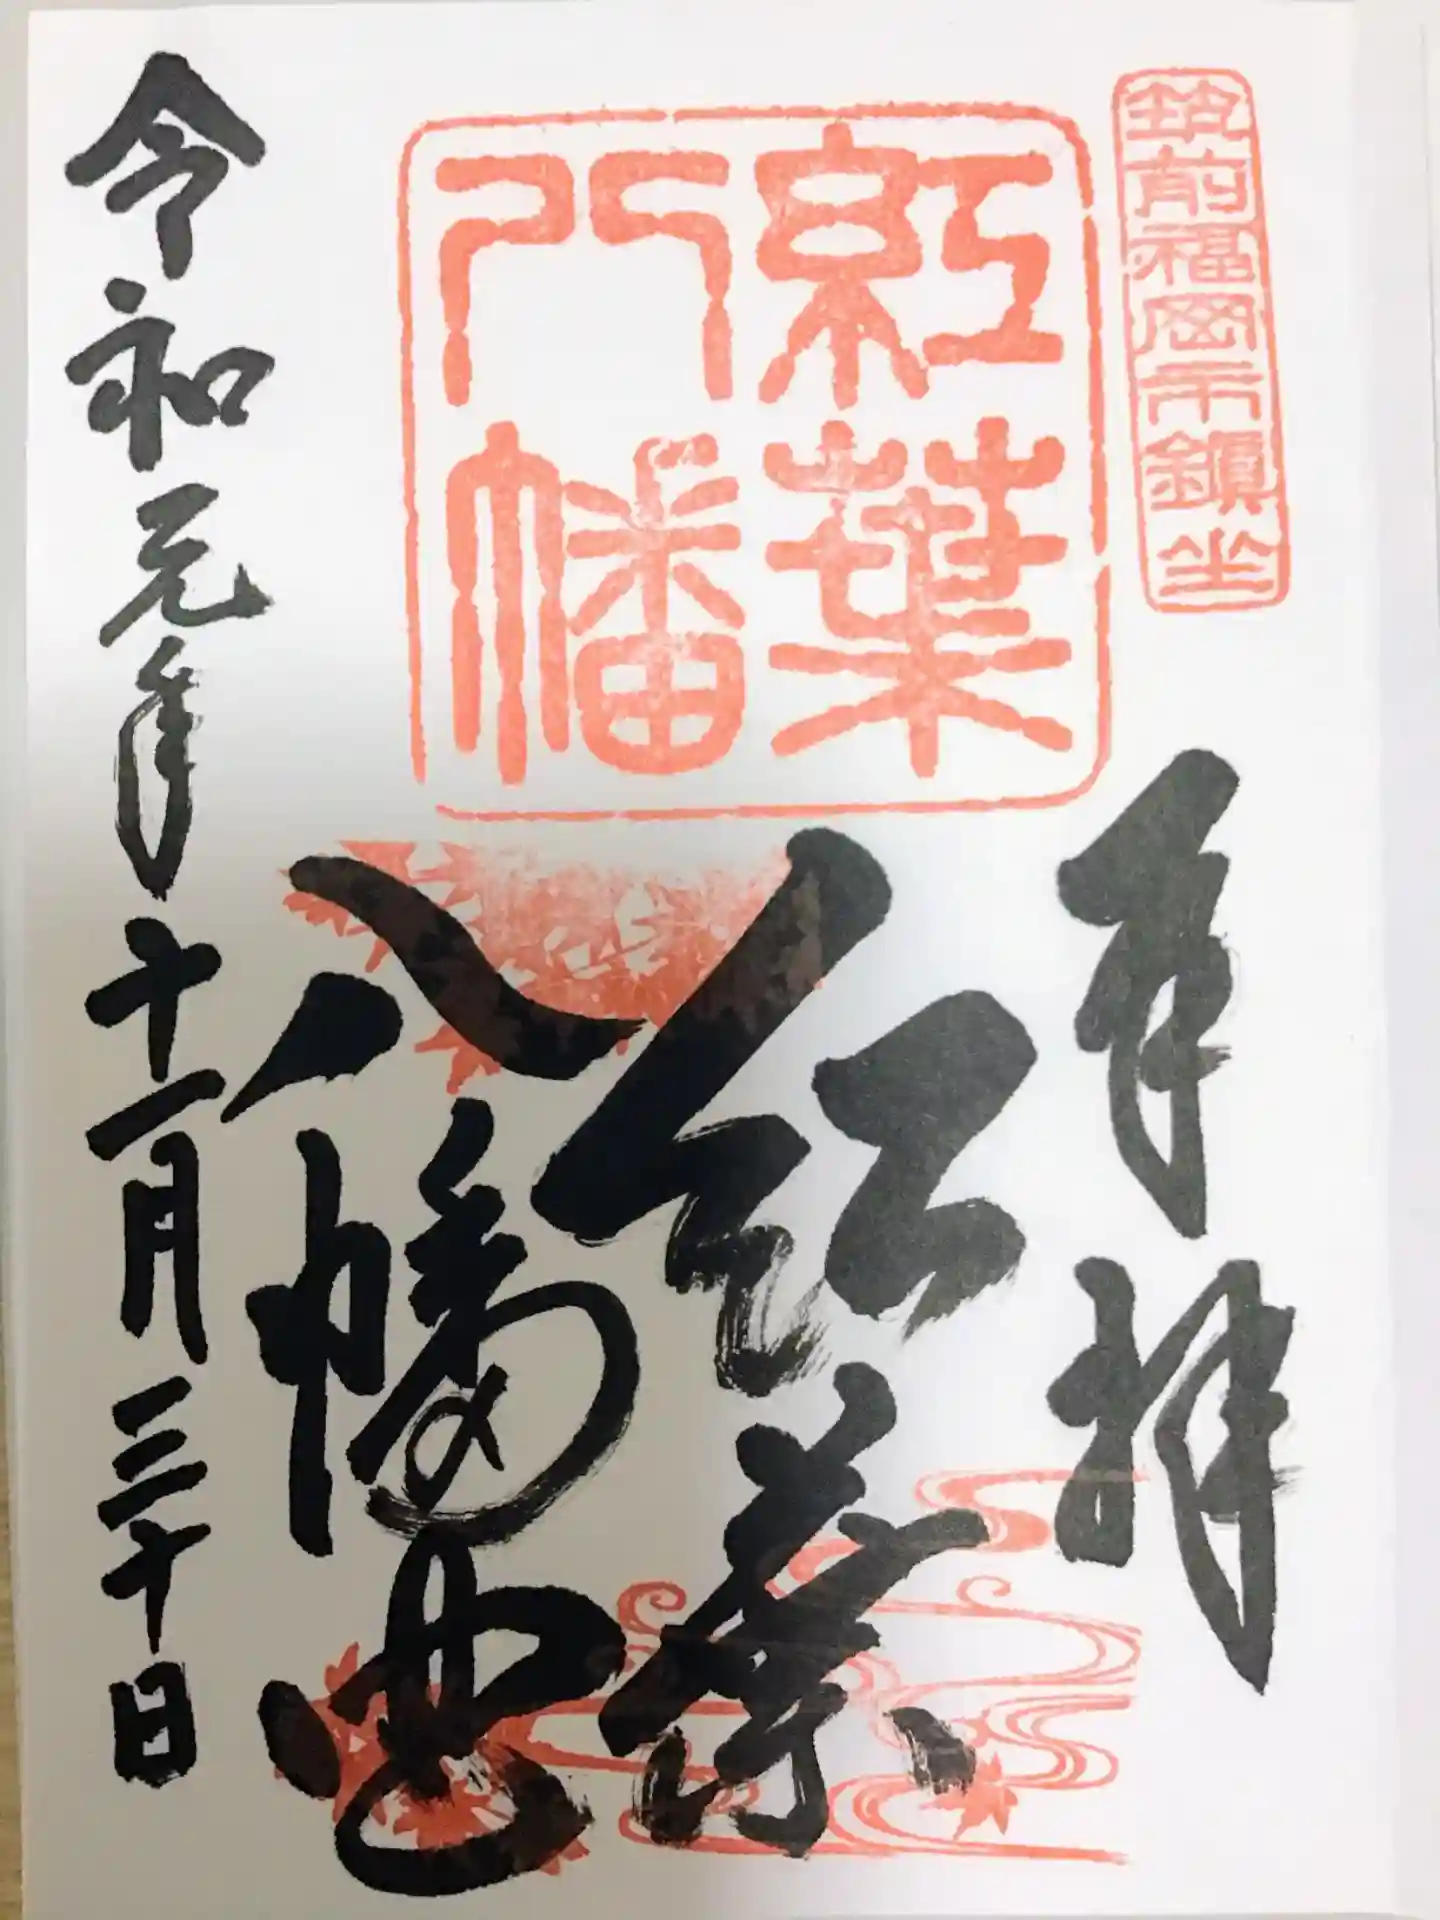 筑前福岡市鎭坐
奉拝
紅葉
八幡
紅葉
八幡宮
令和元年十一月三十日